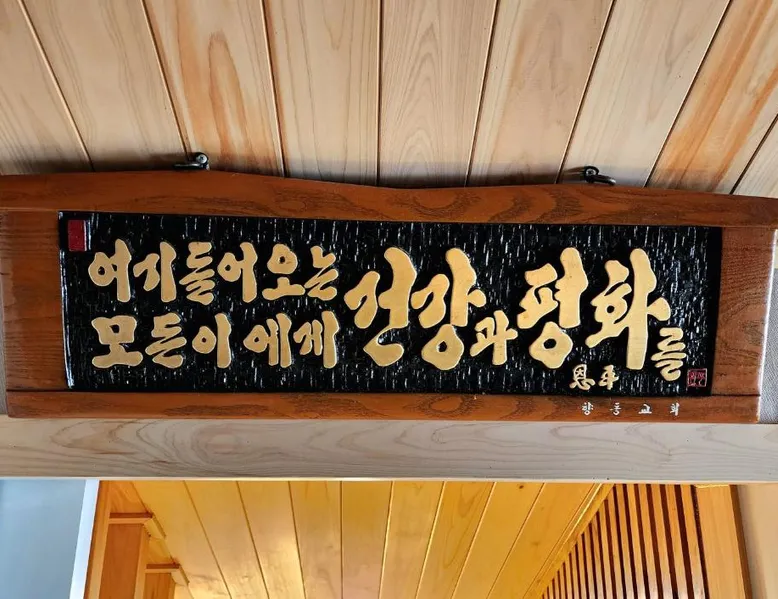 여기들어오는
모든이에게
건강과평화를
恩平
향등교회